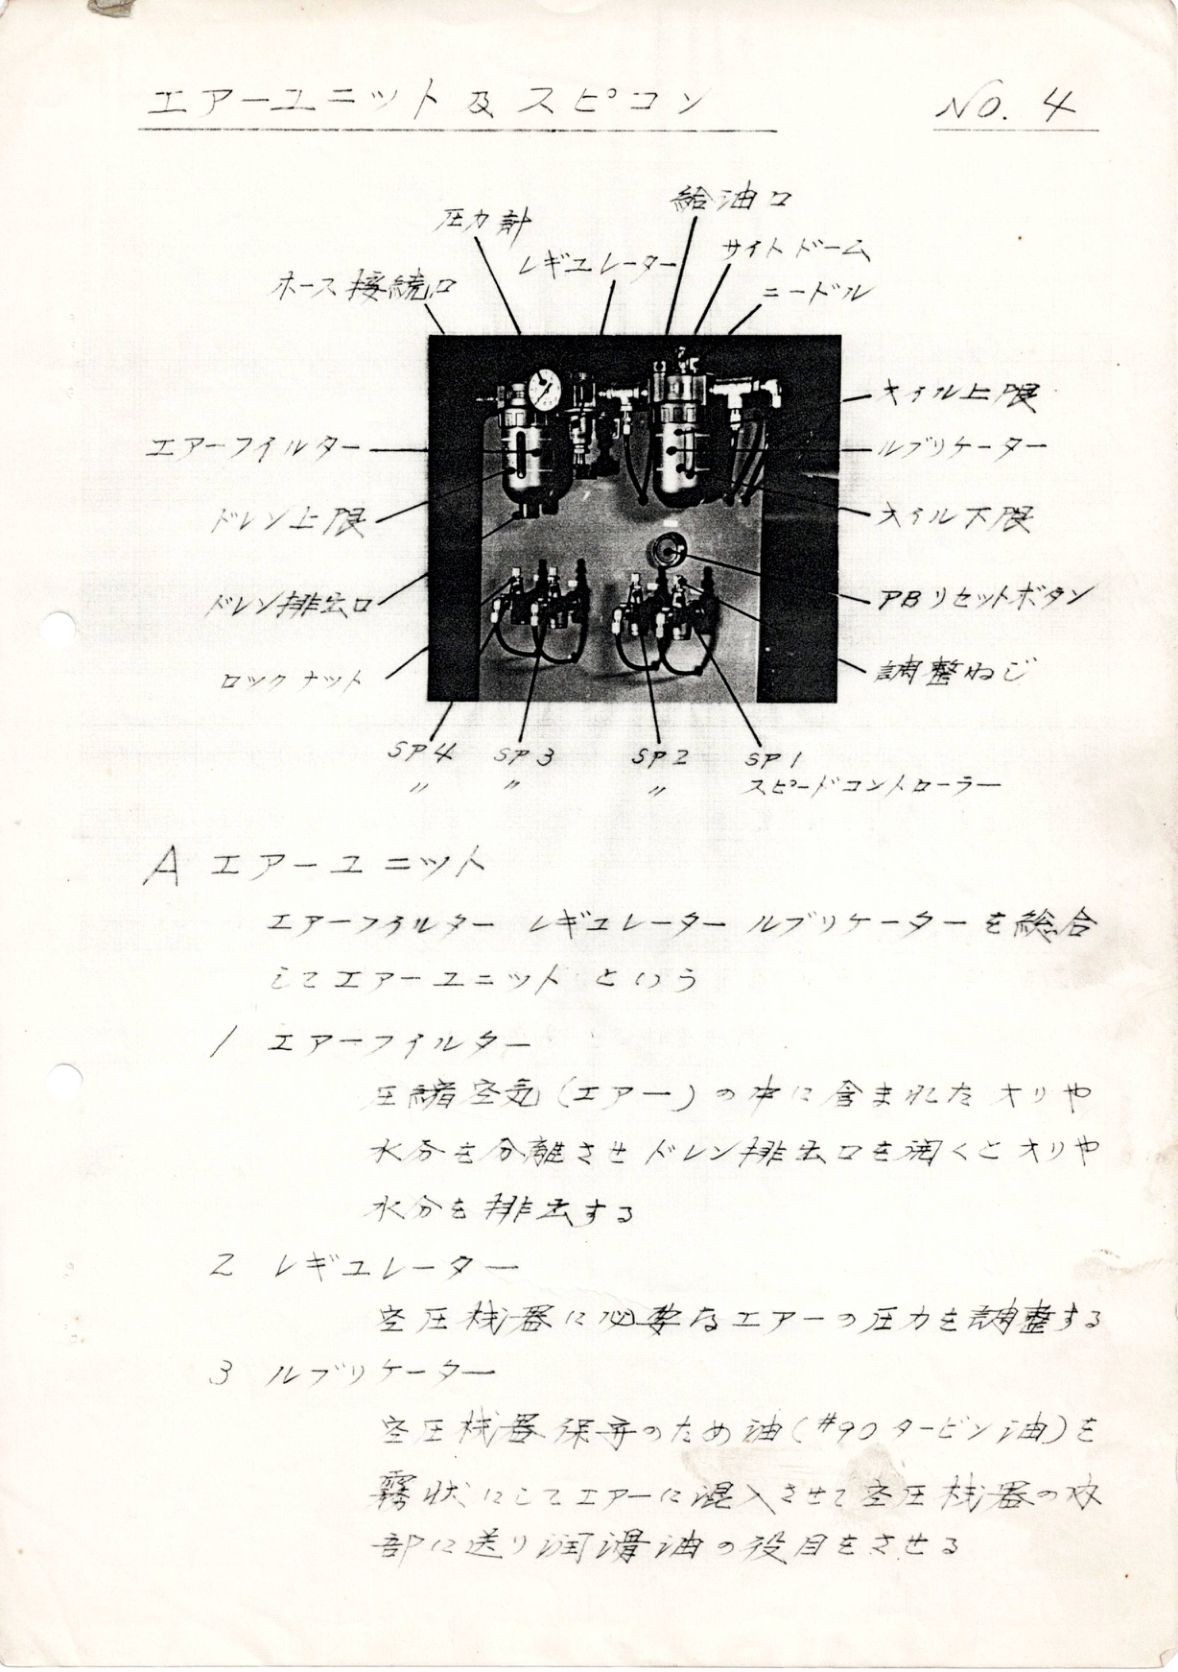 エアーユニット及スピコン
NO. 4
給油口
圧力計
サイトドーム
レギュレーター
ホース接続口
ニードル
オイル上限
エアーフィルター
ルブリケーター
ドレン上限
オイル下限
ドレン排出口
PBリセットボタン
ロックナット
調整ねじ
SP4 SP3 SP2 SP1
〃 〃 〃 スピードコントローラー
A エアーユニット
エアーフィルター レギュレーター ルブリケーターを総合
してエアーユニットという
1 エアーフィルター
圧縮空気(エアー)の中に含まれたオリや
水分を分離させドレン排出口を開くとオリや
水分を排出する
2 レギュレーター
空圧機器に必要なエアーの圧力を調整する
3 ルブリケーター
空圧機器保守のため油(#90タービン油)を
霧状にしてエアーに混入させて空圧機器の各
部に送り潤滑油の役目をさせる